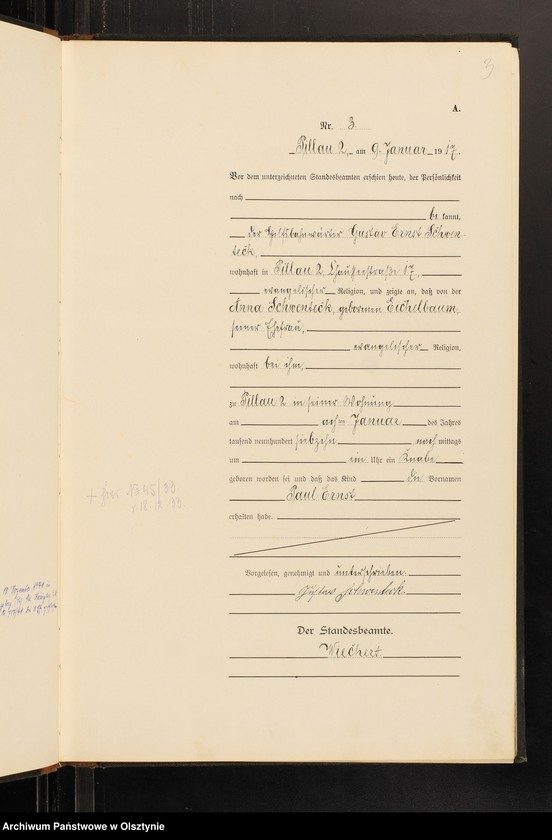 3
A.
Nr. 3.
Pillau 2, am 9. Januar 1917.
Vor dem unterzeichneten Standesbeamten erschien heute, der Persönlichkeit
nach
be kannt,
der Hilfsbahnwärter Gustav Ernst Schwen-
teck,
wohnhaft in Pillau 2, Chausseestraße 17,
evangelischer Religion, und zeigte an, daß von der
Anna Schwenteck, geborenen Eichelbaum,
seiner Ehefrau,
evangelischer Religion,
wohnhaft bei ihm,
zu Pillau 2 in seiner Wohnung
am Januar des Jahres
tausend neunhundert siebzehn nach mittags
um ein Uhr ein Knabe
geboren worden sei und daß das Kind die Vornamen
Paul Ernst
erhalten habe.
Vorgelesen, genehmigt und unterschrieben
Gustav Schwenteck.
Der Standesbeamte.
Wiechert
No 45/
Archiwum Państwowe w Olsztynie